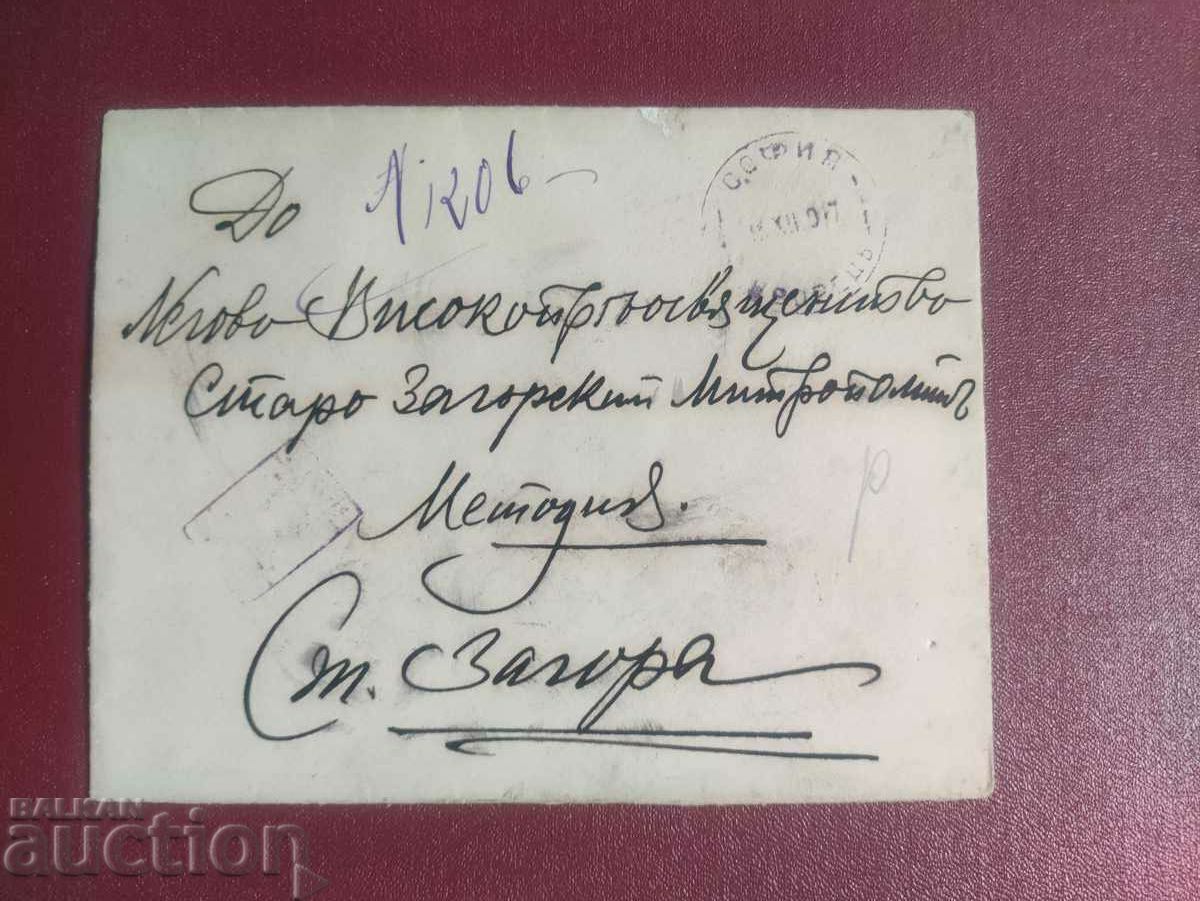 N 1206
СОФИЯ
XII.917
До
Негово Високопрѣосвященство
Старо Загорский Митрополитъ
Методия.
Ст. Загора
BALKAN
auction